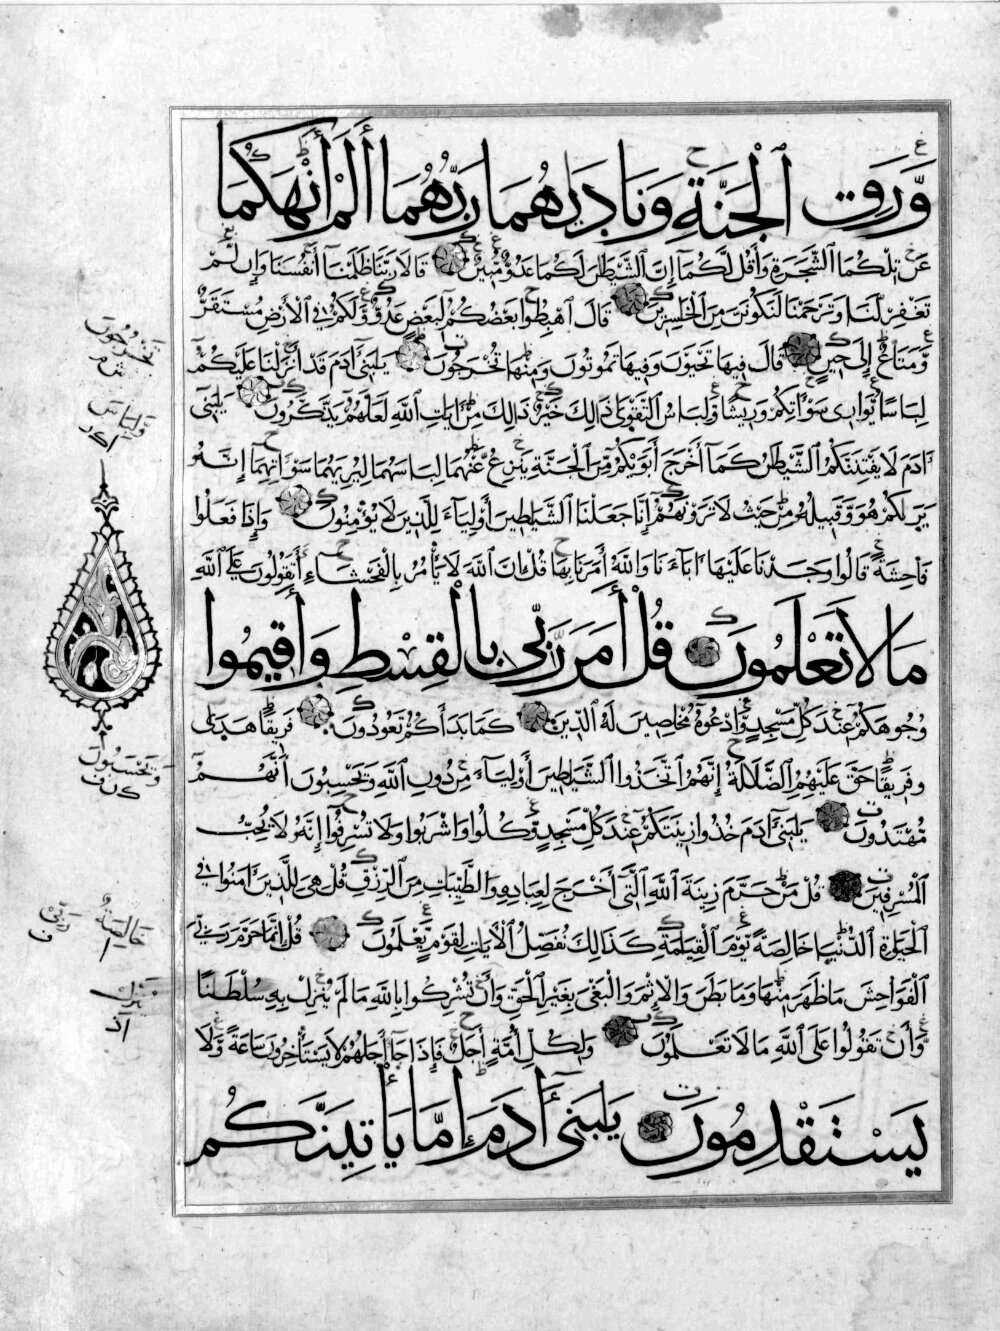 وَّرَقِ ٱلْجَنَّةِ وَنَادٰىهُمَا رَبُّهُمَا أَلَمْ أَنْهَكُمَا
عَنْ تِلْكُمَا ٱلشَّجَرَةِ وَأَقُلْ لَّكُمَا إِنَّ ٱلشَّيْطٰنَ لَكُمَا عَدُوٌّ مُّبِينٌ قَالَا رَبَّنَا ظَلَمْنَا أَنْفُسَنَا وَإِنْ لَّمْ
تَغْفِرْ لَنَا وَتَرْحَمْنَا لَنَكُونَنَّ مِنَ ٱلْخٰسِرِينَ قَالَ ٱهْبِطُوا بَعْضُكُمْ لِبَعْضٍ عَدُوٌّ وَلَكُمْ فِي ٱلْأَرْضِ مُسْتَقَرٌّ
وَّمَتَاعٌ إِلَىٰ حِينٍ قَالَ فِيهَا تَحْيَوْنَ وَفِيهَا تَمُوتُونَ وَمِنْهَا تُخْرَجُونَ يٰبَنِىٓ اٰدَمَ قَدْ أَنْزَلْنَا عَلَيْكُمْ
لِبَاسًا يُّوَارِى سَوْاٰتِكُمْ وَرِيشًا وَّلِبَاسُ التَّقْوٰى ذَالِكَ خَيْرٌ ذَالِكَ مِنْ اٰيَاتِ اللّٰهِ لَعَلَّهُمْ يَذَّكَّرُونَ يٰبَنِىٓ
اٰدَمَ لَا يَفْتِنَنَّكُمُ ٱلشَّيْطٰنُ كَمَآ أَخْرَجَ أَبَوَيْكُمْ مِّنَ ٱلْجَنَّةِ يَنْزِعُ عَنْهُمَا لِبَاسَهُمَا لِيُرِيَهُمَا سَوْاٰتِهِمَا إِنَّهُ
يَرٰىكُمْ هُوَ وَقَبِيلُهُ مِنْ حَيْثُ لَا تَرَوْنَهُمْ إِنَّا جَعَلْنَا ٱلشَّيَاطِينَ أَوْلِيَآءَ لِلَّذِينَ لَا يُؤْمِنُونَ وَإِذَا فَعَلُوا
فَاحِشَةً قَالُوا وَجَدْنَا عَلَيْهَا اٰبَآءَنَا وَاللّٰهُ أَمَرَنَا بِهَا قُلْ إِنَّ اللّٰهَ لَا يَأْمُرُ بِالْفَحْشَاءِ أَتَقُولُونَ عَلَى اللّٰهِ
مَا لَا تَعْلَمُونَ قُلْ أَمَرَ رَبِّي بِالْقِسْطِ وَأَقِيمُوا
وُجُوهَكُمْ عِنْدَ كُلِّ مَسْجِدٍ وَّادْعُوهُ مُخْلِصِينَ لَهُ الدِّينَ كَمَا بَدَأَكُمْ تَعُودُونَ فَرِيقًا هَدٰى
وَفَرِيقًا حَقَّ عَلَيْهِمُ ٱلضَّلٰلَةُ إِنَّهُمُ اتَّخَذُوا ٱلشَّيَاطِينَ أَوْلِيَآءَ مِنْ دُونِ اللّٰهِ وَيَحْسِبُونَ أَنَّهُمْ
مُّهْتَدُونَ يٰبَنِىٓ اٰدَمَ خُذُوا زِينَتَكُمْ عِنْدَ كُلِّ مَسْجِدٍ وَّكُلُوا وَاشْرَبُوا وَلَا تُسْرِفُوا إِنَّهُ لَا يُحِبُّ
ٱلْمُسْرِفِينَ قُلْ مَنْ حَرَّمَ زِينَةَ اللّٰهِ ٱلَّتِى أَخْرَجَ لِعِبَادِهِ وَالطَّيِّبَاتِ مِنَ ٱلرِّزْقِ قُلْ هِىَ لِلَّذِينَ اٰمَنُوا فِى
ٱلْحَيٰوةِ ٱلدُّنْيَا خَالِصَةً يَّوْمَ ٱلْقِيٰمَةِ كَذَالِكَ نُفَصِّلُ ٱلْأٰيَاتِ لِقَوْمٍ يَّعْلَمُونَ قُلْ إِنَّمَا حَرَّمَ رَبِّيَ
ٱلْفَوَاحِشَ مَا ظَهَرَ مِنْهَا وَمَا بَطَنَ وَالْإِثْمَ وَالْبَغْىَ بِغَيْرِ ٱلْحَقِّ وَأَنْ تُشْرِكُوا بِاللّٰهِ مَا لَمْ يُنَزِّلْ بِهِ سُلْطٰنًا
وَّأَنْ تَقُولُوا عَلَى اللّٰهِ مَا لَا تَعْلَمُونَ وَلِكُلِّ أُمَّةٍ أَجَلٌ فَإِذَا جَآءَ أَجَلُهُمْ لَا يَسْتَأْخِرُونَ سَاعَةً وَّلَا
يَسْتَقْدِمُونَ يٰبَنِىٓ اٰدَمَ إِمَّا يَأْتِيَنَّكُمْ
تَخْرُجُونَ
وَلِبَاسَ
وَيَحْسَبُونَ
خَالِصَةٌ
رَبِّيْ
يُنْزِلْ